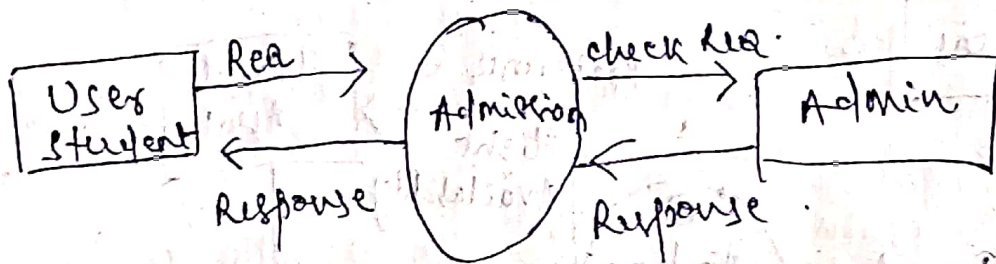 User
Student
Req
Response
Admission
check Req.
Response.
Admin